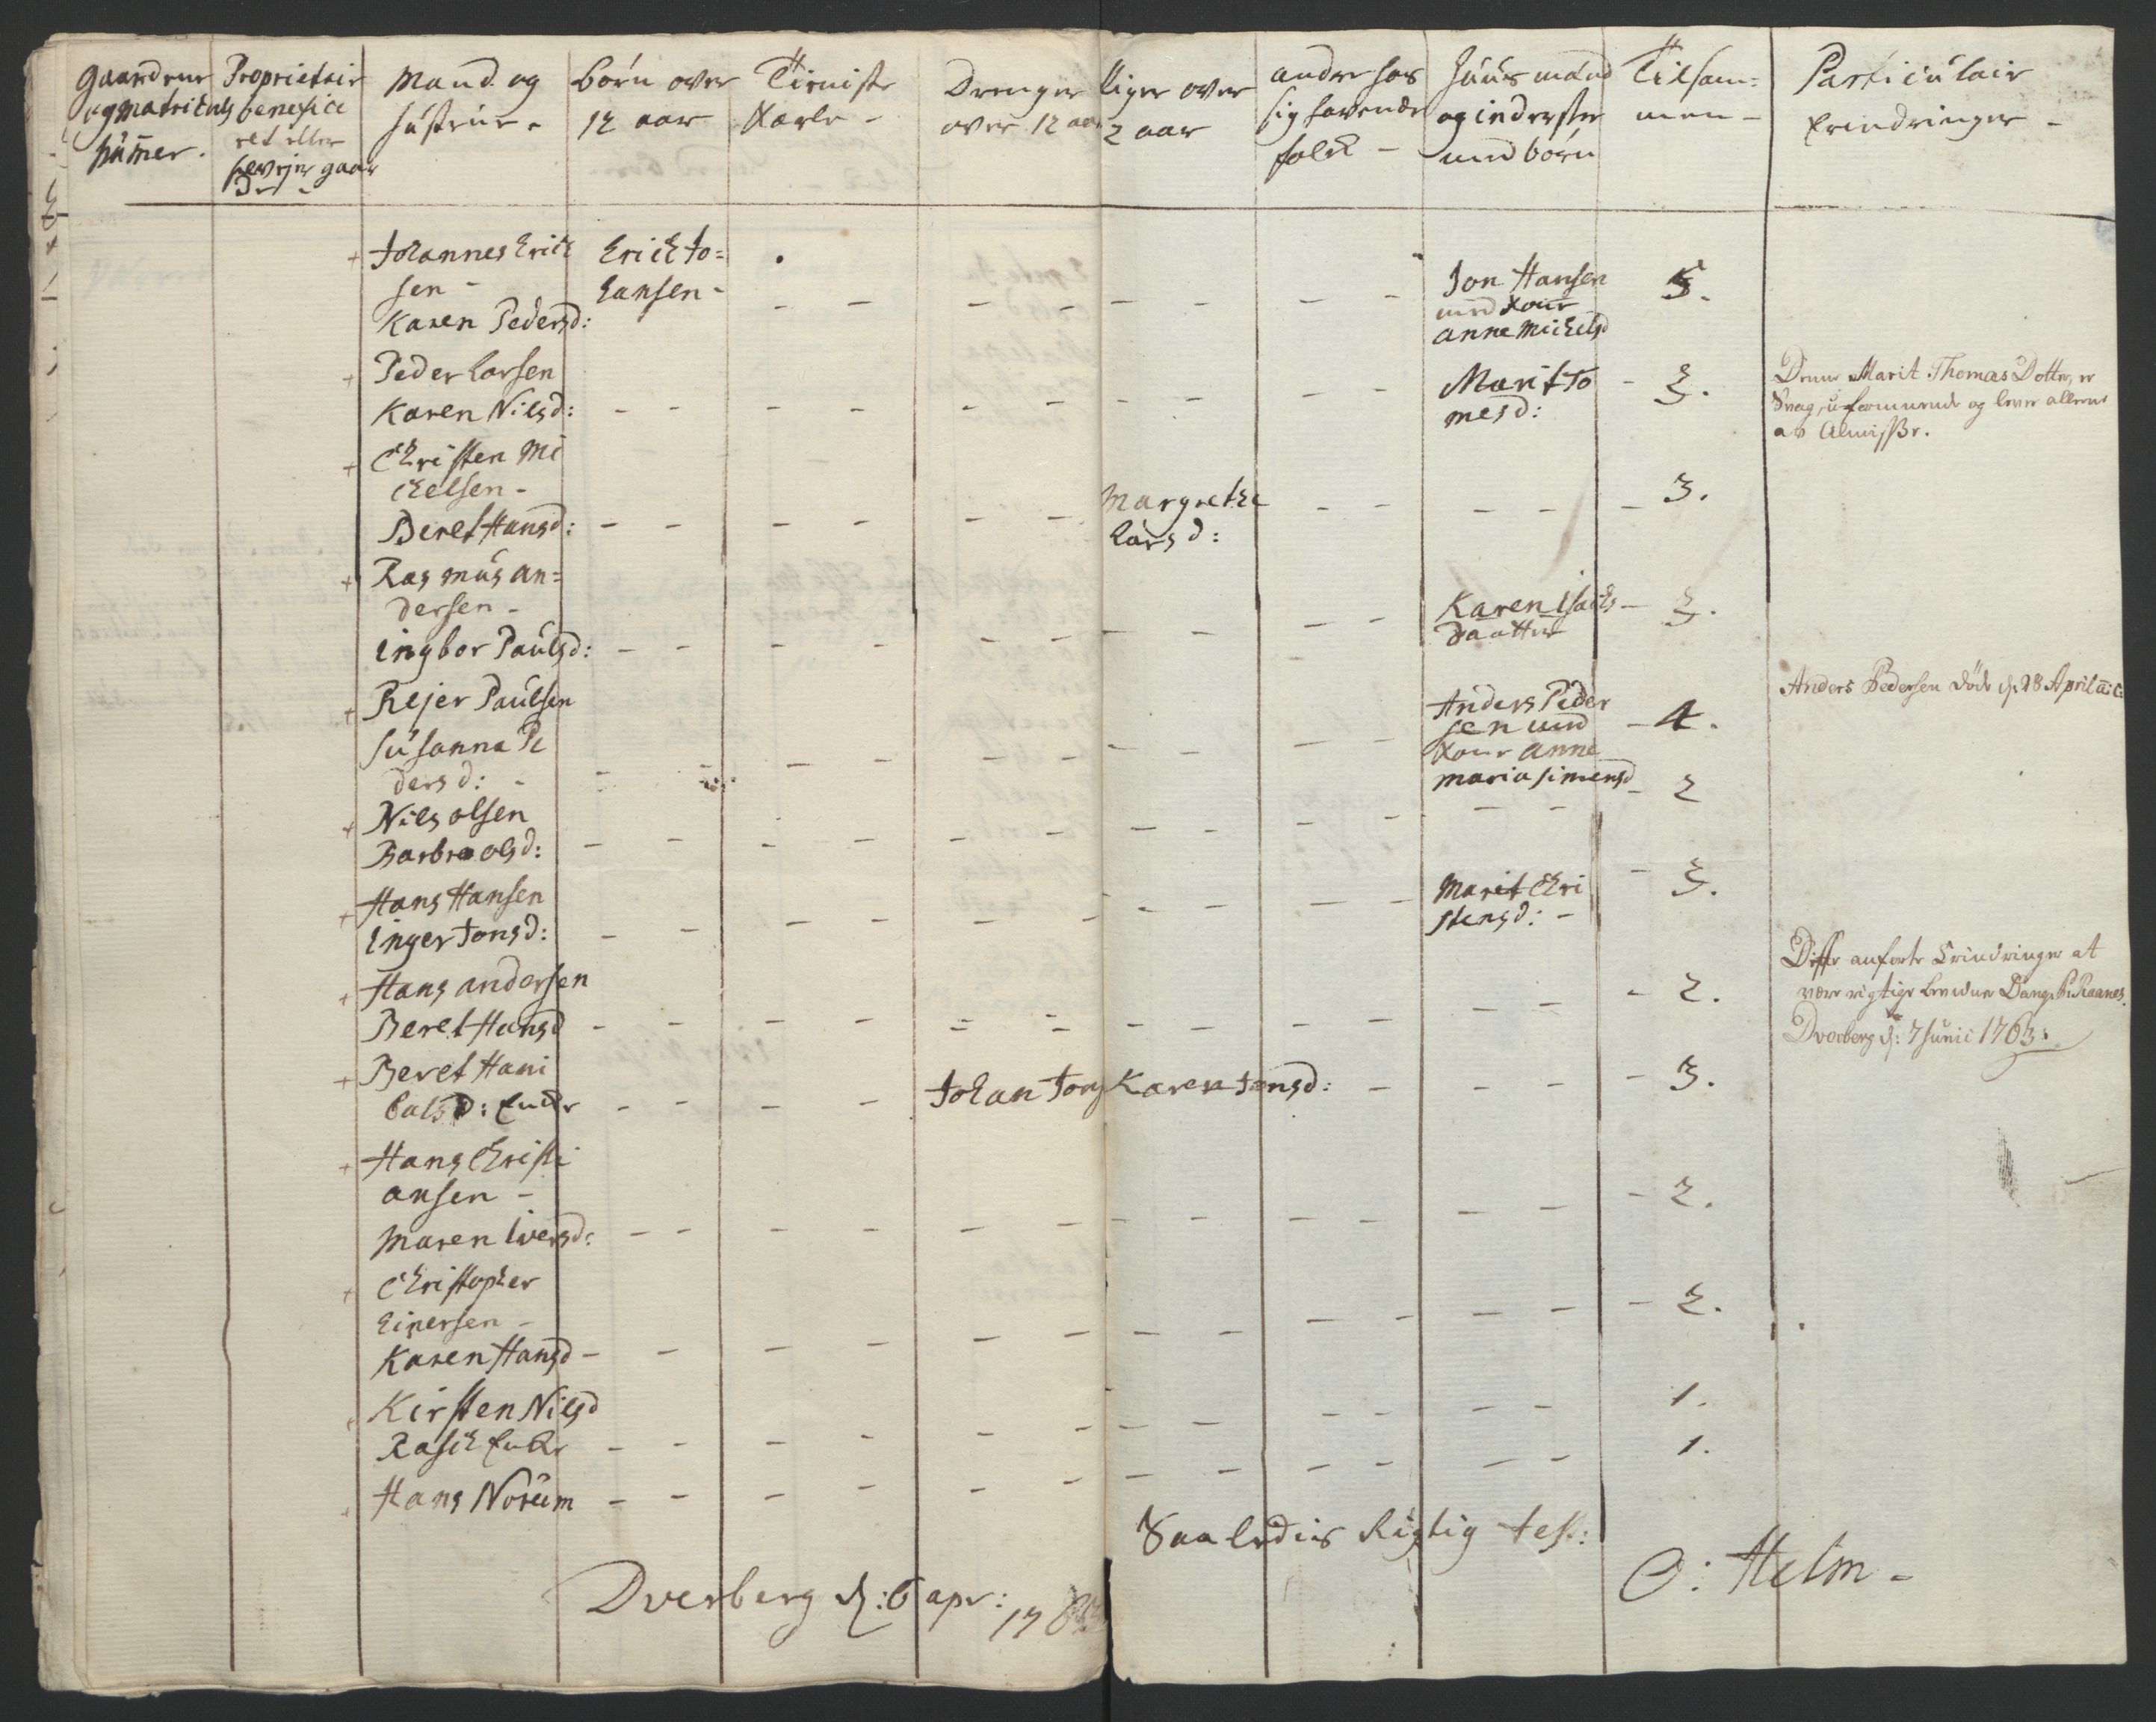 Gaardenes
og Matriculs
Numer.
Proprietair
benefice
ret eller
sewejer gaar
der
Mand og
Hustrue.
børn over
12 aar
Tieniste
Karle -
Drenger
over 12 aar
Piger over
12 aar
andre hos
sig havende
folck -
Huusmænd
og inderster
med børn
Tilsam=
men -
Particulair
Erindringer -
+ Johannes Erich
sen -
Karen Pedersd:
Erich Jo=
hansen -
Jon Hansen
med Kone
anne Michelsd
5.
+ Peder Larsen
Karen Nilsd:
Marit To
mesd:
- 3.
Denne Marit Thomas Dotter, er
Svag, uformuende og lever alleene
av Almisse.
+ Christen Mi
chelsen -
Beret Hansd:
Margrethe
Larsd:
3.
+ Rasmus an=
dersen -
Ingbor Paulsd:
Karen Isachs
Daatter
- 3.
+ Rejer Paulsen
Susanna Pe
dersd: -
Anders Peder
sen med
Kone Anne
Maria Simensd
- 4.
Anders Pedersen døde d: 28 April a: c:
+ Nils olsen
Barbra olsd:
- 2
+ Hans Hansen
Inger Jonsd:
Marit Chri
stensd: -
- 3.
+ Hans andersen
Beret Hansd
- 2.
Disse anførte Erindringer at
være rigtige bevidner
Dverberg d: 7 Junii 1763.
+ Beret Hani
balsd: Encke
Johan Jons
Karen Jonsd:
- 3.
+ Hans Christi
ansen -
Maren Iversd:
- 2.
+ Christopher
Einersen -
Karen Hansd -
- 2.
Kirsten Nilsd
Rasch Encke
1.
Hans Norum
1.
Saaledeis Rigtig test:
Dverberg d: 6 apr: 1763
O: Helm -